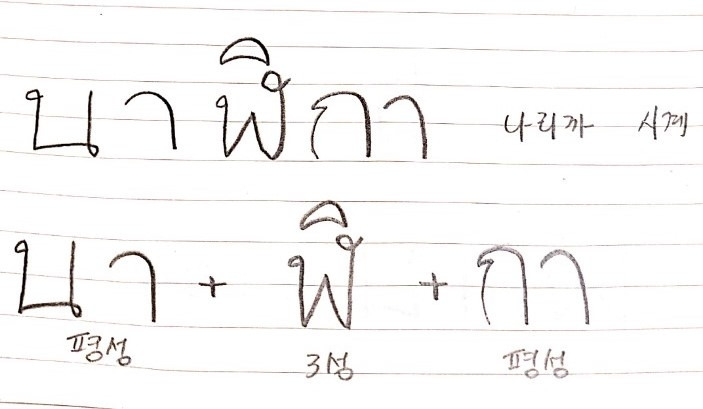 นาฬิกา 나리까 시계
นา + ฬิ + กา
평성 3성 평성